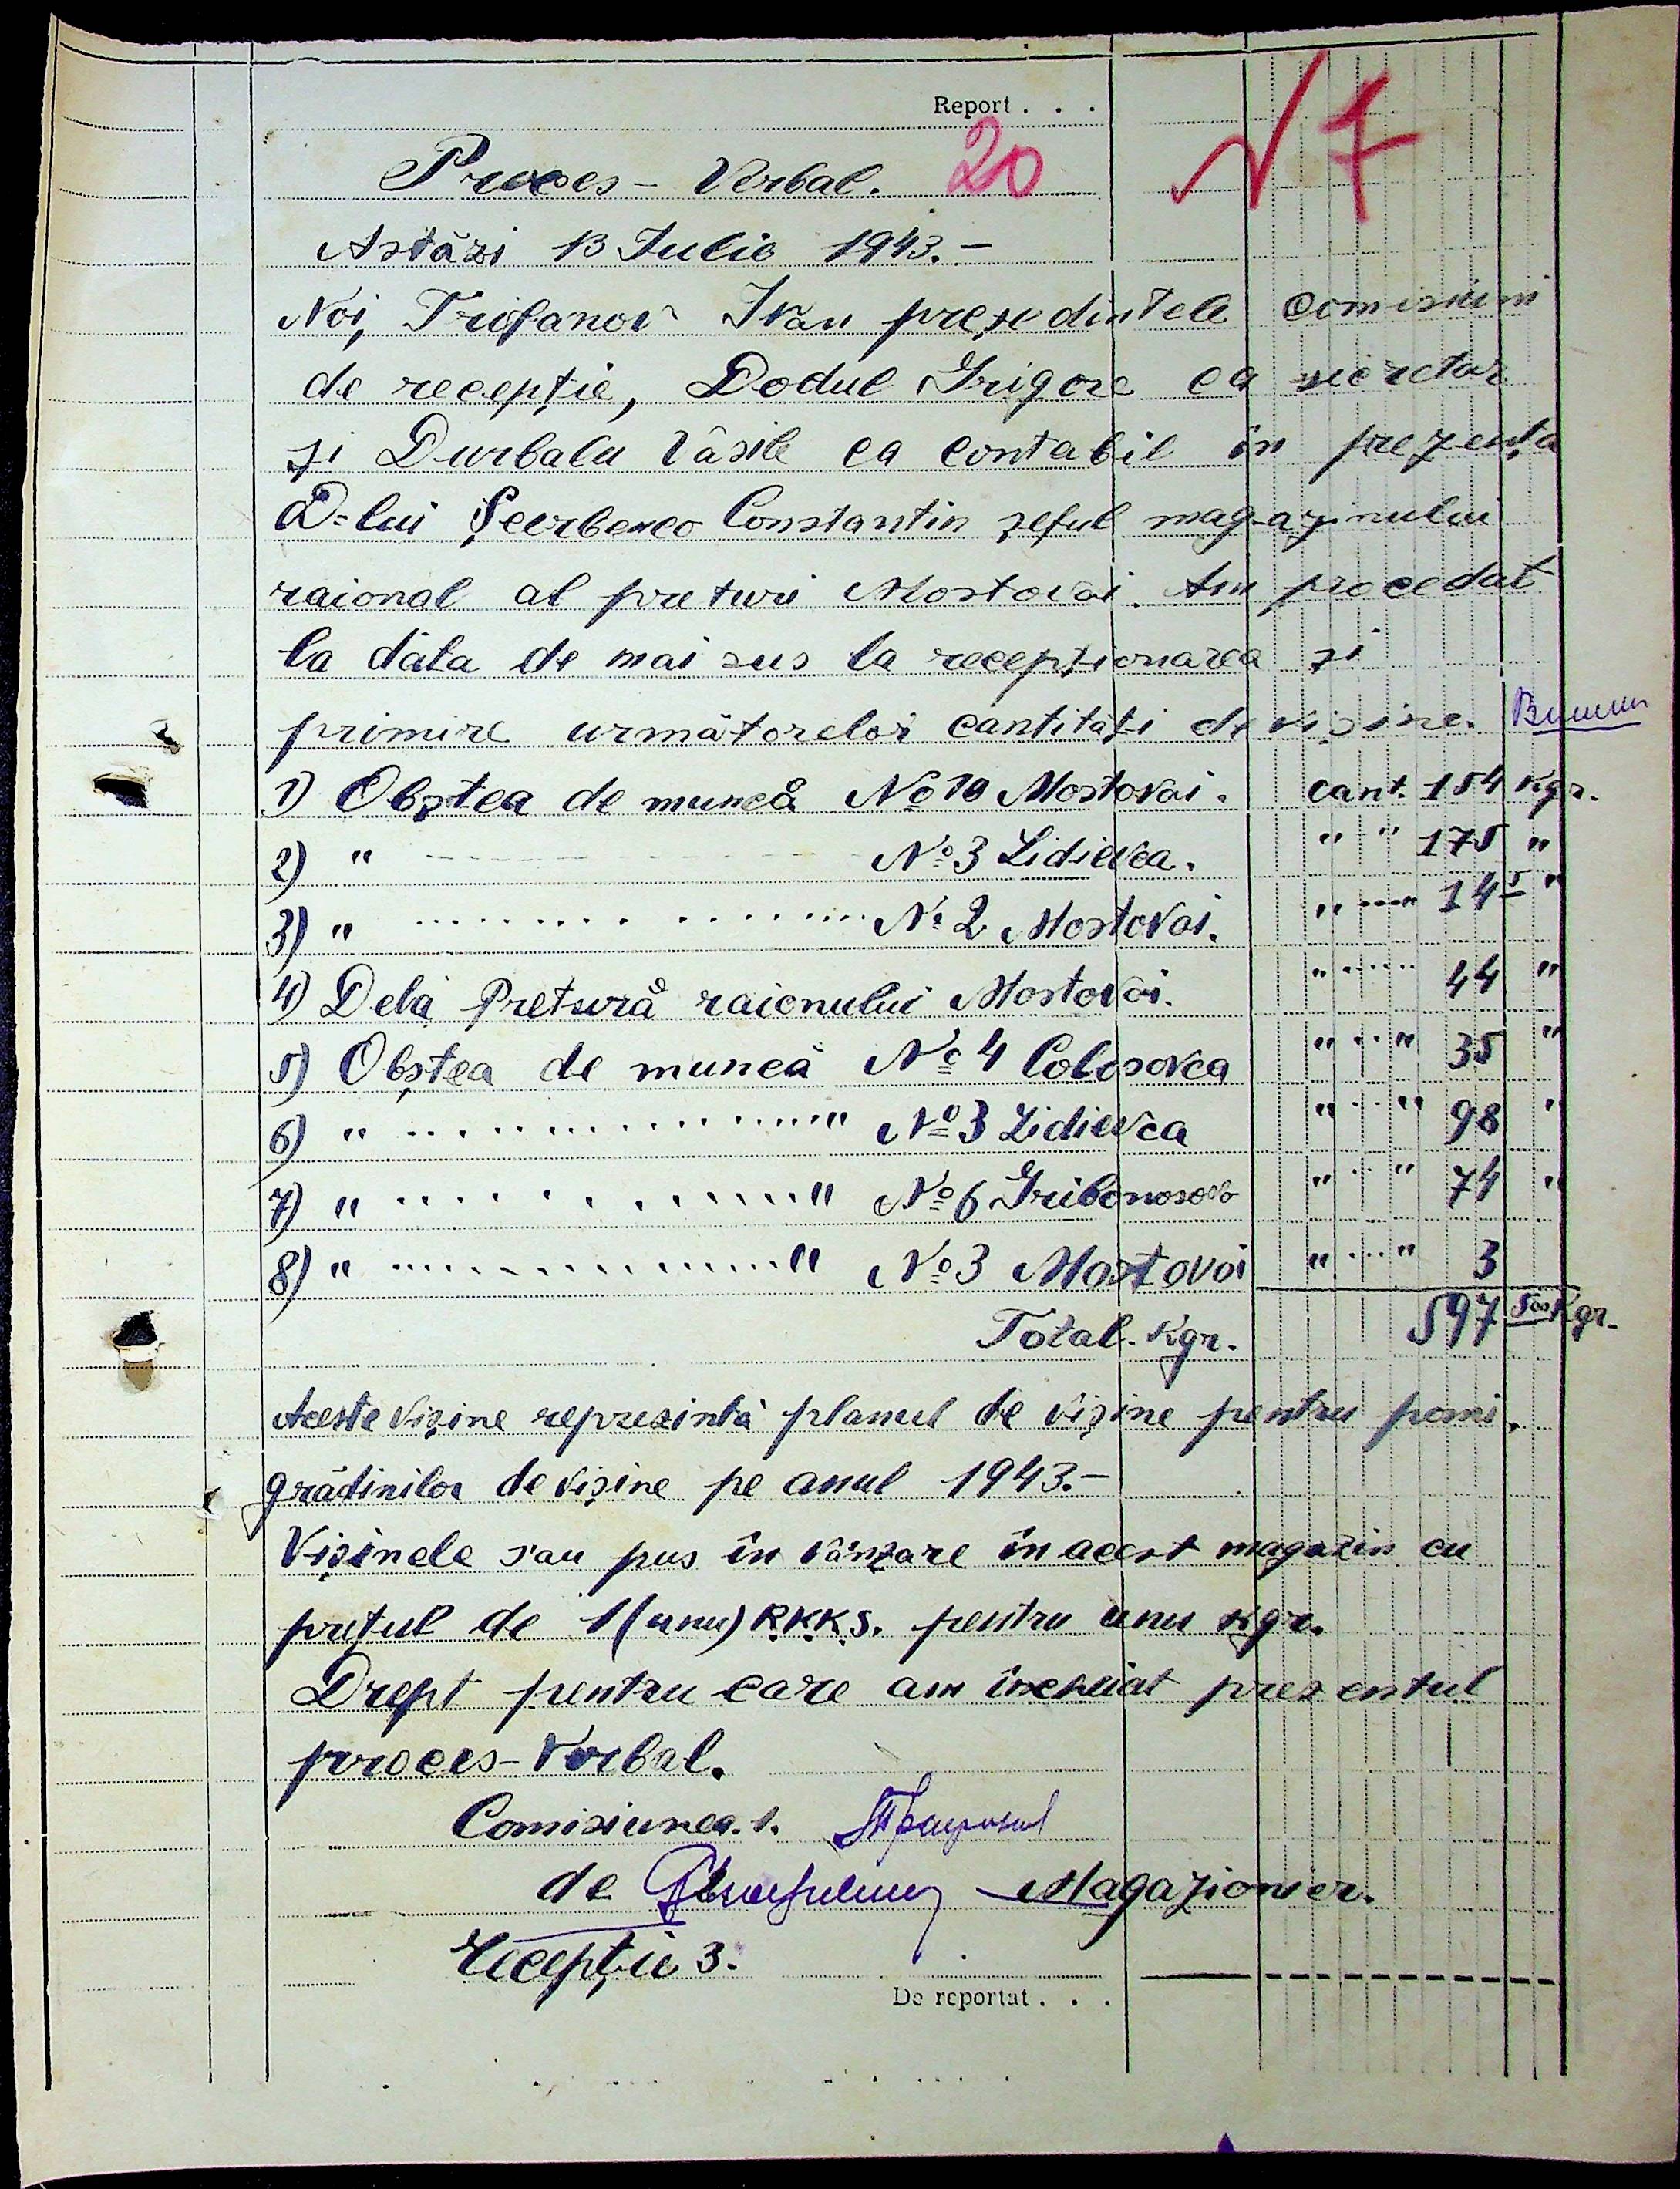 Report . . .
20
√ 7
Proces - Verbal.
Astăzi 13 Iulie 1943.-
Noi, Trifanov Ivan președintele comisiuni
de recepție, Dodul Grigore ca secretar
și Durbala Vasile ca contabil în prezența
D-lui Șcerbenco Constantin șeful magazinului
raional al preturi Mostovoi. Am procedat
la data de mai sus la recepționarea și
primire următorelor cantități de vișine.
1) Obștea de muncă No 10 Mostovoi. cant. 154 Kgr.
2) " No 3 Lidievca. " - " 175 "
3) " No 2 Mostovoi. " " 14 5 "
4) Dela Pretură raionului Mostovoi. " 44 "
5) Obștea de muncă No 4 Colosovca " " 35 "
6) " " No 3 Lidievca " " 98 "
7) " " No 6 Gribonosovo " " 74 "
8) " " No 3 Mostovoi " " 3
Total Kgr. 597 500 Kgr.
Aceste vișine reprezintă planul de vișine pentru pomi,
grădinilor de vișine pe anul 1943.-
Vișinele s'au pus în vânzare în acest magazin cu
prețul de 1 (unu) R.K.K.S. pentru unu kgr.
Drept pentru care am încheiat prezentul
proces-verbal.
Comisiunea. 1.
de Magazioner.
recepție 3.
De reportat . . .